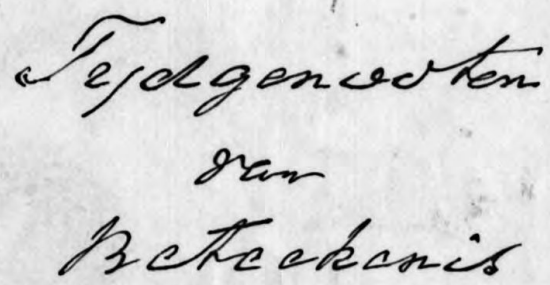 Tijdgenooten
van
Beteekenis